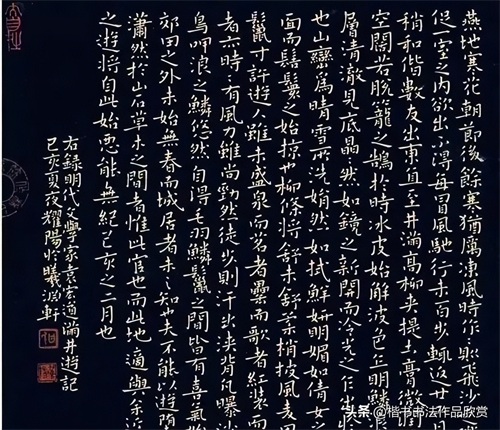 燕地寒花朝節後餘寒猶厲凍風時作〻則飛沙
促一室之内欲出不得每冒風馳行未百步輒返廿日
稍和偕數友出東直至井滿高柳夾堤土膏微潤
空闊若脫籠之鵠於時冰皮始解波色乍明鱗
層清澈見底晶〻然如鏡之新開而冷光之乍出於
也山巒爲晴雪所洗娟然如拭鮮妍明媚如倩女之
面而髻鬟之始掠也柳條將舒未舒柔梢披風麥田
鬣寸許遊人雖未盛泉而茗者罍而歌者紅裝而
者亦時〻有風力雖尚勁然徒步則汗出浹背凡曝沙
鳥呷浪之鱗悠然自得毛羽鱗鬣之間皆有喜氣始
郊田之外未始無春而城居者未之知也夫不能以遊墮
瀟然於山石草木之間者惟此官也而此地適與余近
之遊將自此始惡能無紀己亥之二月也
右錄明代文學家袁宏道滿井遊記
己亥夏夜耀陽於曦軒
头条 @楷书书法作品欣赏